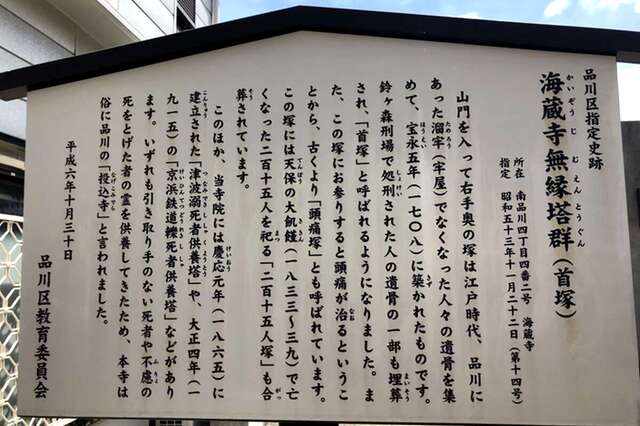 品川区指定史跡
海蔵寺無縁塔群（首塚）
かいぞうじむえんとうぐん
所在　南品川四丁目四番二号　海蔵寺
指定　昭和五十三年十一月二十二日（第十四号）
山門を入って右手奥の塚は江戸時代、品川に
あった溜牢（牢屋）でなくなった人々の遺骨を集
めて、宝永五年（一七〇八）に築かれたものです。
鈴ヶ森刑場で処刑された人の遺骨の一部も埋葬
され、「首塚」と呼ばれるようになりました。ま
た、この塚にお参りすると頭痛が治るというこ
とから、古くより「頭痛塚」とも呼ばれています。
この塚には天保の大飢饉（一八三三～三九）で亡
くなった二百十五人を祀る「二百十五人塚」も合
葬されています。
このほか、当寺院には慶応元年（一八六五）に
建立された「津波溺死者供養塔」や、大正四年（一
九一五）の「京浜鉄道轢死者供養塔」などがあり
ます。いずれも引き取り手のない死者や不慮の
死をとげた者の霊を供養してきたため、本寺は
俗に品川の「投込寺」と言われました。
平成六年十月三十日
品川区教育委員会